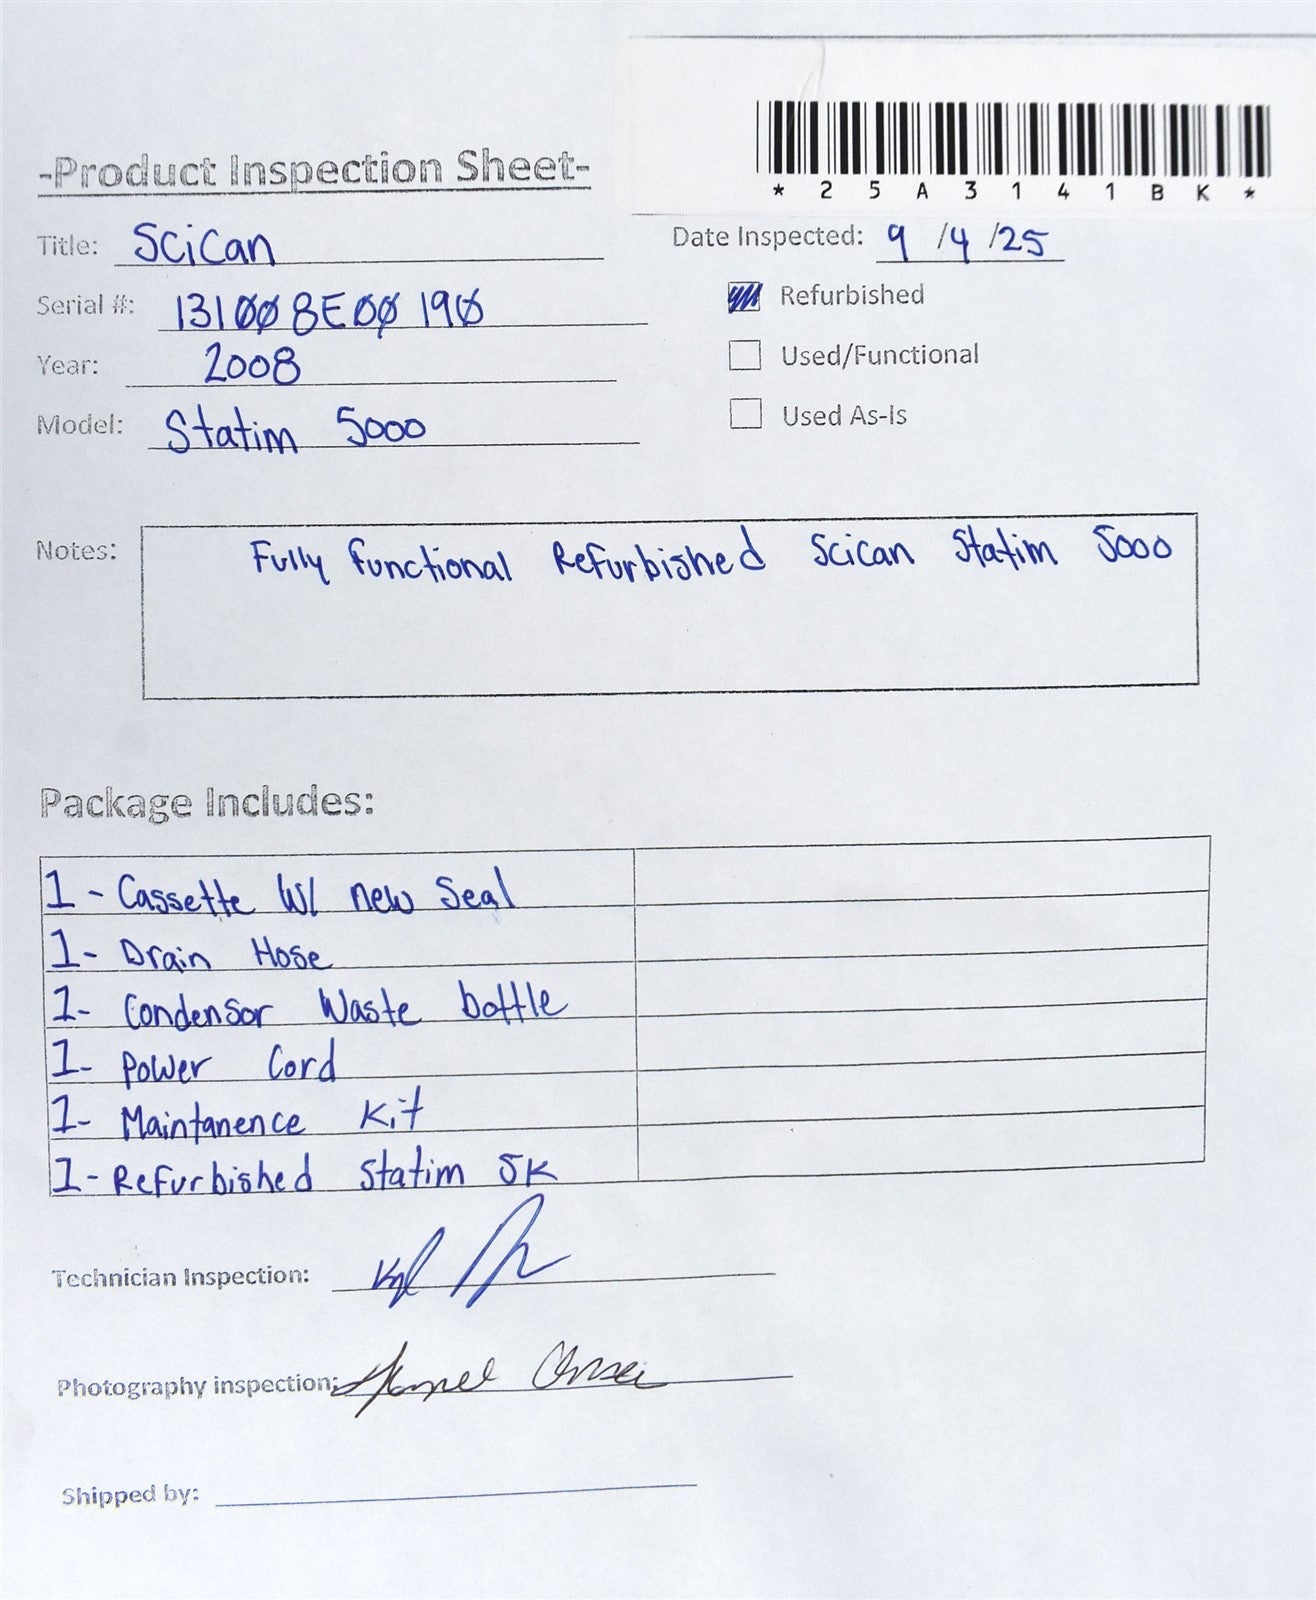 *25A3141BK*
-Product Inspection Sheet-
Title: SciCan
Date Inspected: 9/4/25
Serial #: 131008E00190
Refurbished
Year: 2008
Used/Functional
Model: Statim 5000
Used As-Is
Notes: Fully functional Refurbished Scican Statim 5000
Package Includes:
1 - Cassette W/ new Seal
1- Drain Hose
1- Condensor Waste bottle
1- Power Cord
1- Maintanence Kit
1- Refurbished Statim 5K
Technician Inspection:
Photography inspection:
Shipped by: